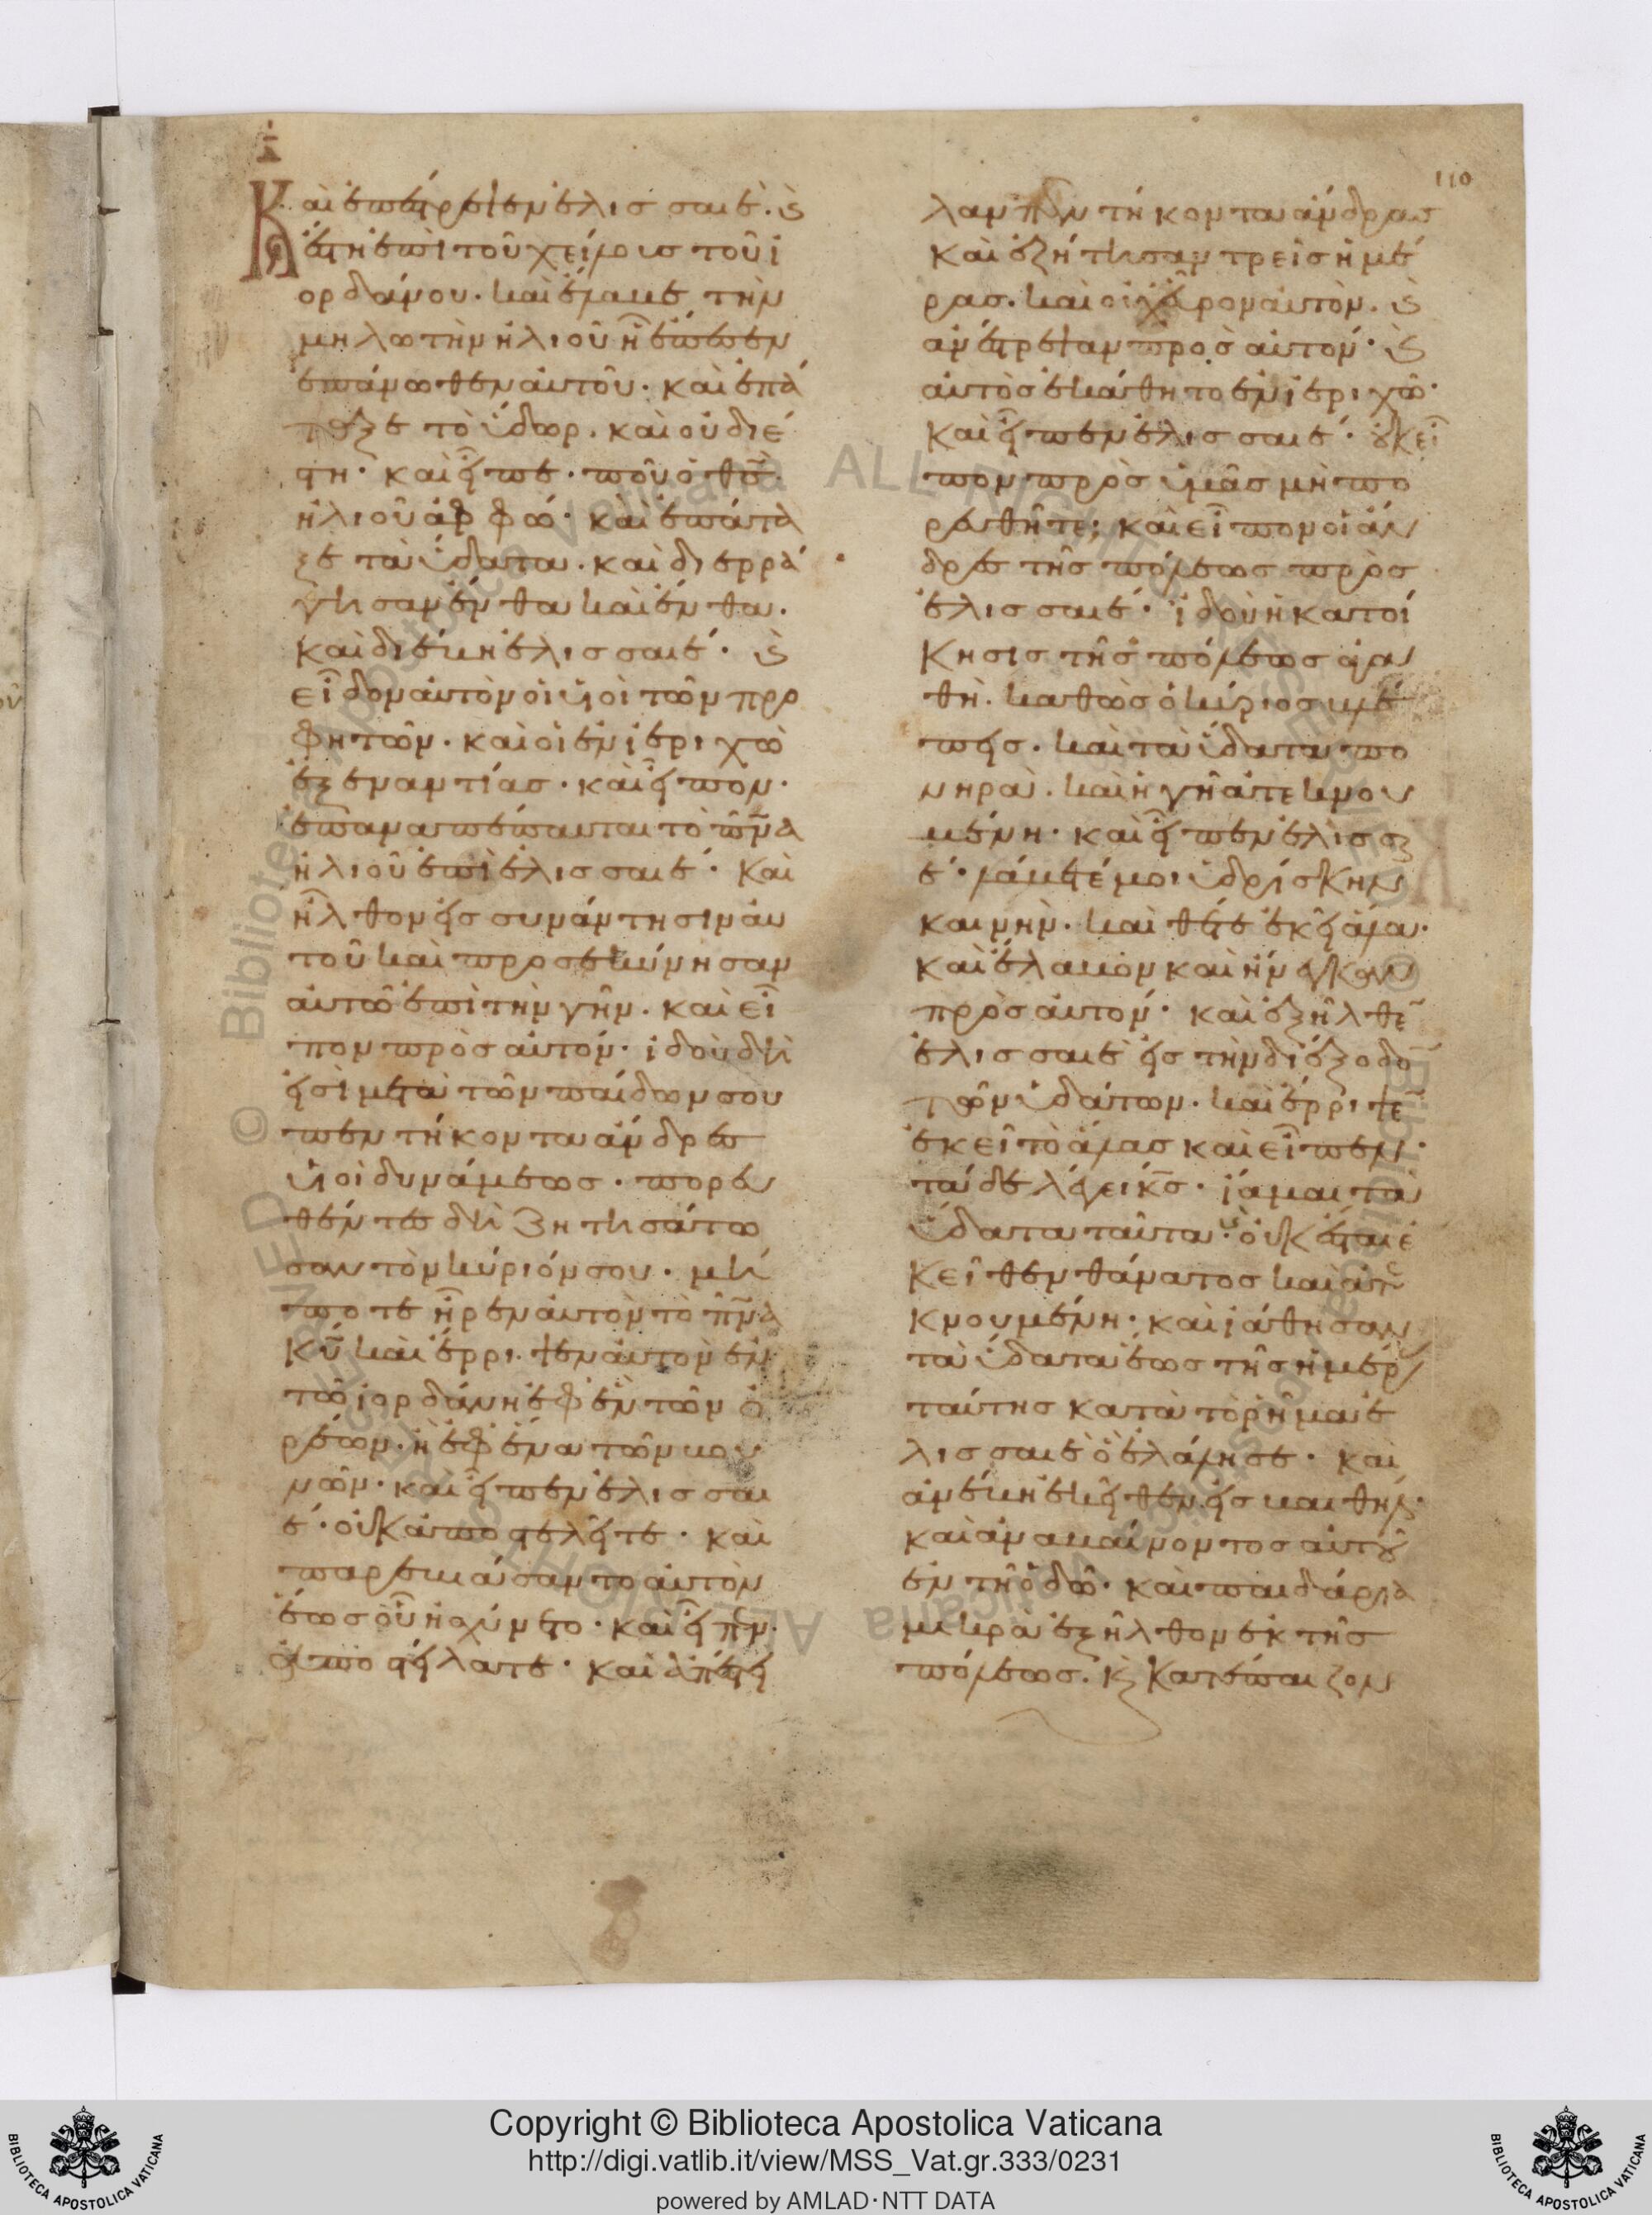 110
Καὶ ἐπέστρεψεν ἐλισσαιέ. καὶ
ἔστη ἐπὶ τοῦ χείλους τοῦ ἰ
ορδάνου. καὶ ἔλαβε τὴν
μηλωτὴν ἠλιοῦ ἣ ἔπεσεν
ἐπάνωθεν αὐτοῦ. καὶ ἐπά
ταξε τὸ ὕδωρ. καὶ οὐ διέ
στη. καὶ εἶπε. ποῦ ὁ θ̅ς̅
ἠλιοῦ ἀφφώ. καὶ ἐπάτα
ξε τὰ ὕδατα. καὶ διερρά
γησαν ἔνθα καὶ ἔνθα.
καὶ διέβη ἐλισσαιέ. καὶ
εἶδον αὐτὸν οἱ υἱοὶ τῶν προ
φητῶν. καὶ οἱ ἐν ἰεριχὼ
ἐξεναντίας. καὶ εἶπον.
ἐπαναπέπαυται τὸ π̅ν̅α̅
ἠλιοῦ ἐπὶ ἐλισσαιέ. Καὶ
ἦλθον εἰς συνάντησιν αὐ
τοῦ καὶ προσεκύνησαν
αὐτῶ ἐπὶ τὴν γῆν. καὶ εἶ
πον πρὸς αὐτόν. ἰδοὺ δὴ
εἰσὶ μετὰ τῶν παίδων σου
πεντήκοντα ἄνδρες
υἱοὶ δυνάμεως. πορευ
θέντες δὴ ζητησάτω
σαν τὸν κύριόν σου. μή
ποτε ἦρεν αὐτὸν τὸ π̅ν̅α̅
κ̅υ̅ καὶ ἔρριψεν αὐτὸν ἐν
τῶ ἰορδάνη ἢ ἐφ' ἓν τῶν ὀ
ρέων. ἢ ἐφ' ἕνα τῶν βου
νῶν. καὶ εἶπεν ἐλισσαι
έ. οὐκ ἀποστελεῖτε. καὶ
παρεβιάσαντο αὐτὸν
ἕως οὗ ἠσχύνετο. καὶ εἶπεν.
ἀποστείλατε. καὶ ἀπέστει
λαν πεντήκοντα ἄνδρας
καὶ ἐζήτησαν τρεῖς ἡμέ
ρας. καὶ οὐχ εὗρον αὐτὸν. καὶ
ἀνέστρεψαν πρὸς αὐτόν. καὶ
αὐτὸς ἐκάθητο ἐν ἰεριχῶ.
Καὶ εἶπεν ἐλισσαιέ. οὐκ εἶ
πον πρὸς ὑμᾶς μὴ πο
ρευθῆτε; καὶ εἶπον οἱ ἄν
δρες τῆς πόλεως πρὸς
ἐλισσαιέ. ἰδοὺ ἡ κατοί
κησις τῆς πόλεως ἀγα
θὴ. καθὼς ὁ κύριος βλέ
πεις. καὶ τὰ ὕδατα πο
νηρὰ. καὶ ἡ γῆ ἀτεκνου
μένη. καὶ εἶπεν ἐλισσαι
έ. λάβετέ μοι ὑδρίσκην
καινὴν. καὶ θέτε ἐκεῖ ἅλα.
καὶ ἔλαβον καὶ ἤνεγκαν
πρὸς αὐτόν. καὶ ἐξῆλθεν
ἐλισσαιὲ εἰς τὴν διέξοδον
τῶν ὑδάτων. καὶ ἔρριψεν
ἐκεῖ τὸ ἅλας καὶ εἶπεν.
τάδε λέγει κ̅ς̅. ἴαμαι τὰ
ὕδατα ταῦτα. οὐκ ἔσται ἐ
κεῖθεν θάνατος καὶ ἀτε
κνουμένη. καὶ ἰάθησαν
τὰ ὕδατα ἕως τῆς ἡμέρας
ταύτης κατὰ τὸ ῥῆμα ἐ
λισσαιὲ ὃ ἐλάλησε. καὶ
ἀνέβη ἐκεῖθεν εἰς βαιθήλ.
καὶ ἀναβαίνοντος αὐτοῦ
ἐν τῆ ὁδῶ. καὶ παιδάρια
μικρὰ ἐξῆλθον ἐκ τῆς
πόλεως. καὶ κατέπαιζον
Copyright © Biblioteca Apostolica Vaticana
http://digi.vatlib.it/view/MSS_Vat.gr.333/0231
powered by AMLAD·NTT DATA